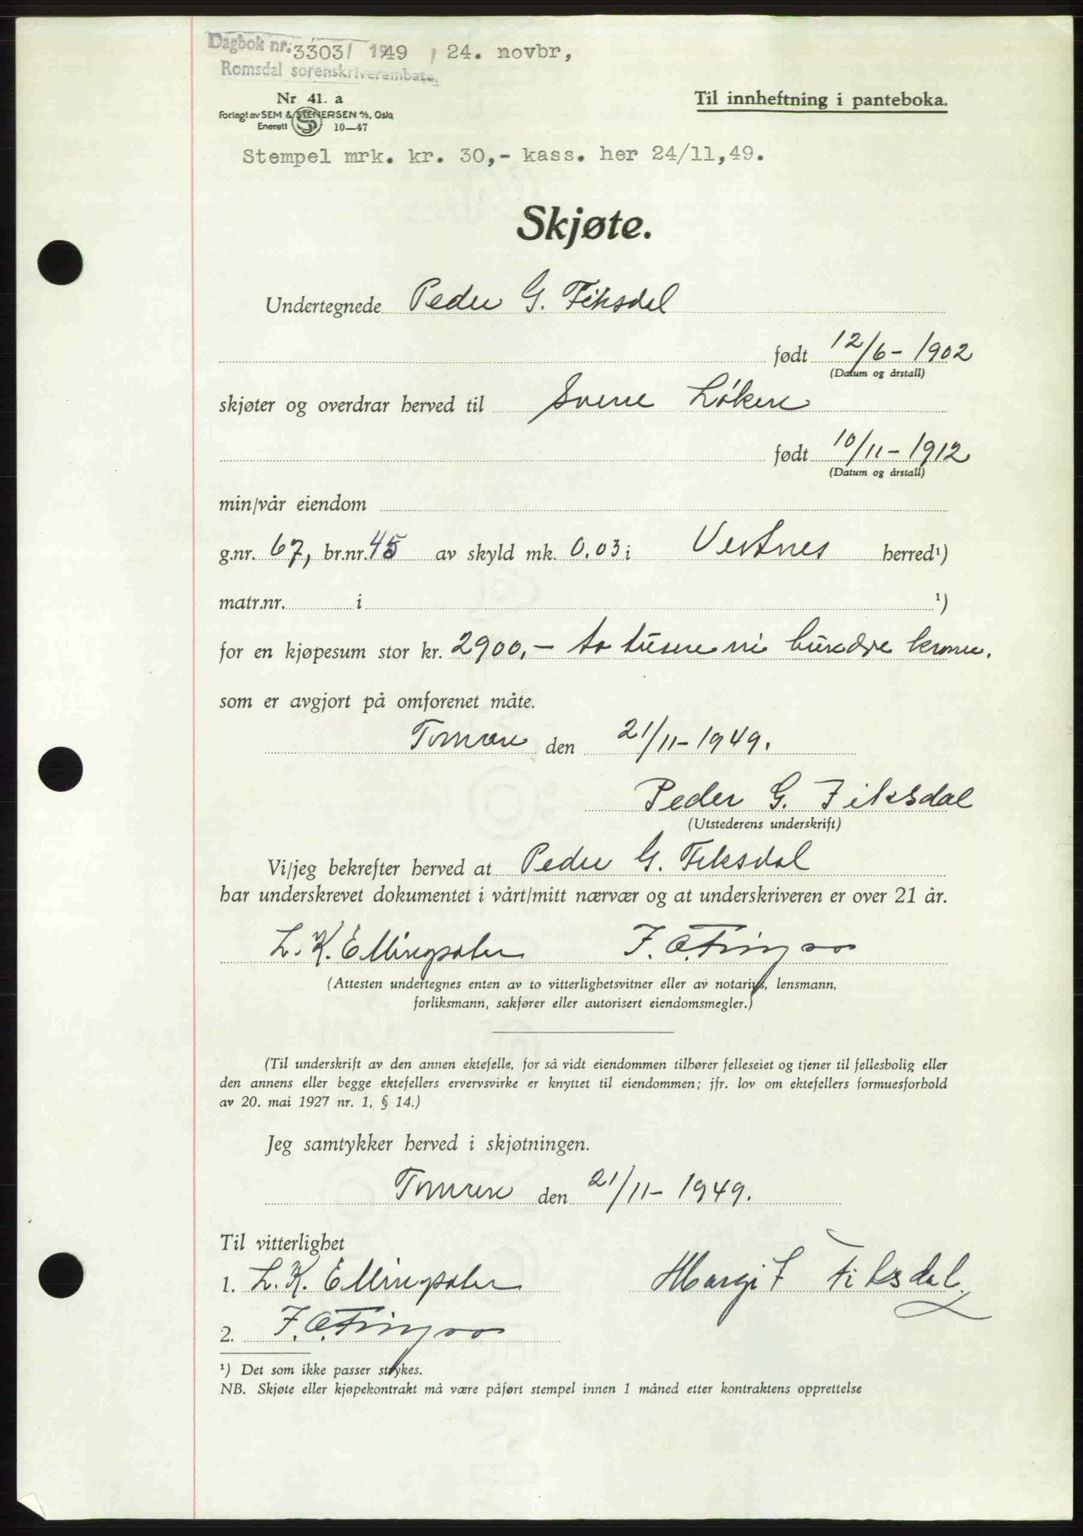 Dagbok nr. 3303/ 1949 / 24. novbr,
Romsdal sorenskriverembete
Nr 41. a
Til innheftning i panteboka.
Forlagt av SEM & STENERSEN A/S, Oslo
Enerett 10—47
Stempel mrk. kr. 30,- kass. her 24/11,49.
Skjøte.
Undertegnede Peder G. Fiksdal
født 12/6 - 1902
(Datum og årstall)
skjøter og overdrar herved til Sverre Løkere
født 10/11 - 1912
(Datum og årstall)
min/vår eiendom
g.nr. 67, br.nr. 45 av skyld mk. 0.03 i Vestnes herred¹)
matr.nr. i ¹)
for en kjøpesum stor kr. 2900,- to tusen ni hundre kroner.
som er avgjort på omforenet måte.
Tomren den 21/11 - 1949.
Peder G. Fiksdal
(Utstederens underskrift)
Vi/jeg bekrefter herved at Peder G. Fiksdal
har underskrevet dokumentet i vårt/mitt nærvær og at underskriveren er over 21 år.
L. K. Ellingsæter
(Attesten undertegnes enten av to vitterlighetsvitner eller av notarius, lensmann,
forliksmann, sakfører eller autorisert eiendomsmegler.)
(Til underskrift av den annen ektefelle, for så vidt eiendommen tilhører felleseiet og tjener til fellesbolig eller
den annens eller begge ektefellers ervervsvirke er knyttet til eiendommen; jfr. lov om ektefellers formuesforhold
av 20. mai 1927 nr. 1, § 14.)
Jeg samtykker herved i skjøtningen.
Tomren den 21/11 - 1949.
Til vitterlighet
1. L. K. Ellingsæter Margit Fiksdal.
2.
¹) Det som ikke passer strykes.
NB. Skjøte eller kjøpekontrakt må være påført stempel innen 1 måned etter kontraktens opprettelse